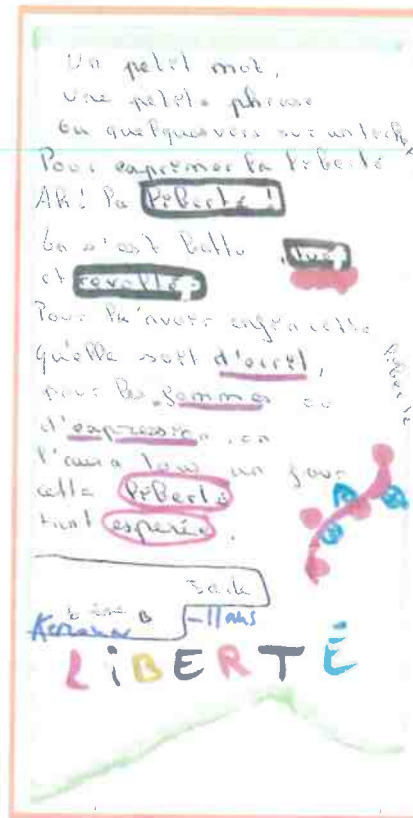 Un petit mot,
une petite phrase
ou quelques vers sur un
Pour exprimer la liberté
Ah! la liberté!
On s'est battu, tué
et révolté,
Pour l'avoir enfin cette
qu'elle soit d'écrit,
pour les femmes ou
d'expression, on
l'aura tous un jour
cette liberté
tant espérée.
liberté
B
-11 ans
LiBERTÉ